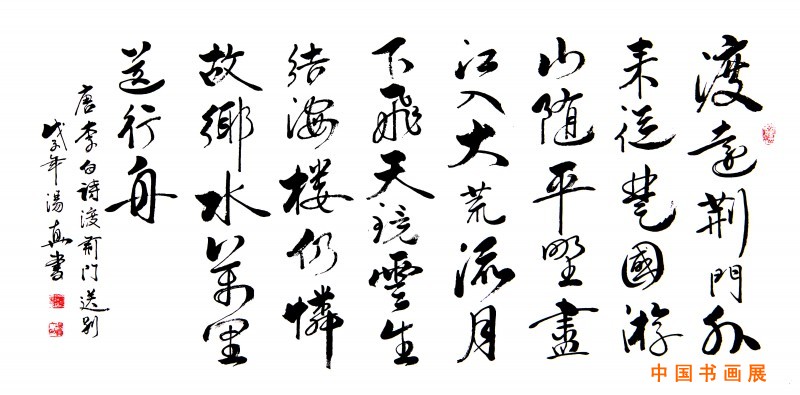 渡遠荆門外
来從楚國游
山随平野盡
江入大荒流月
下飛天鏡雲生
結海樓仍憐
故鄉水萬里
送行舟
唐李白诗渡荆门送别
戊子年湯真書
中国书画展